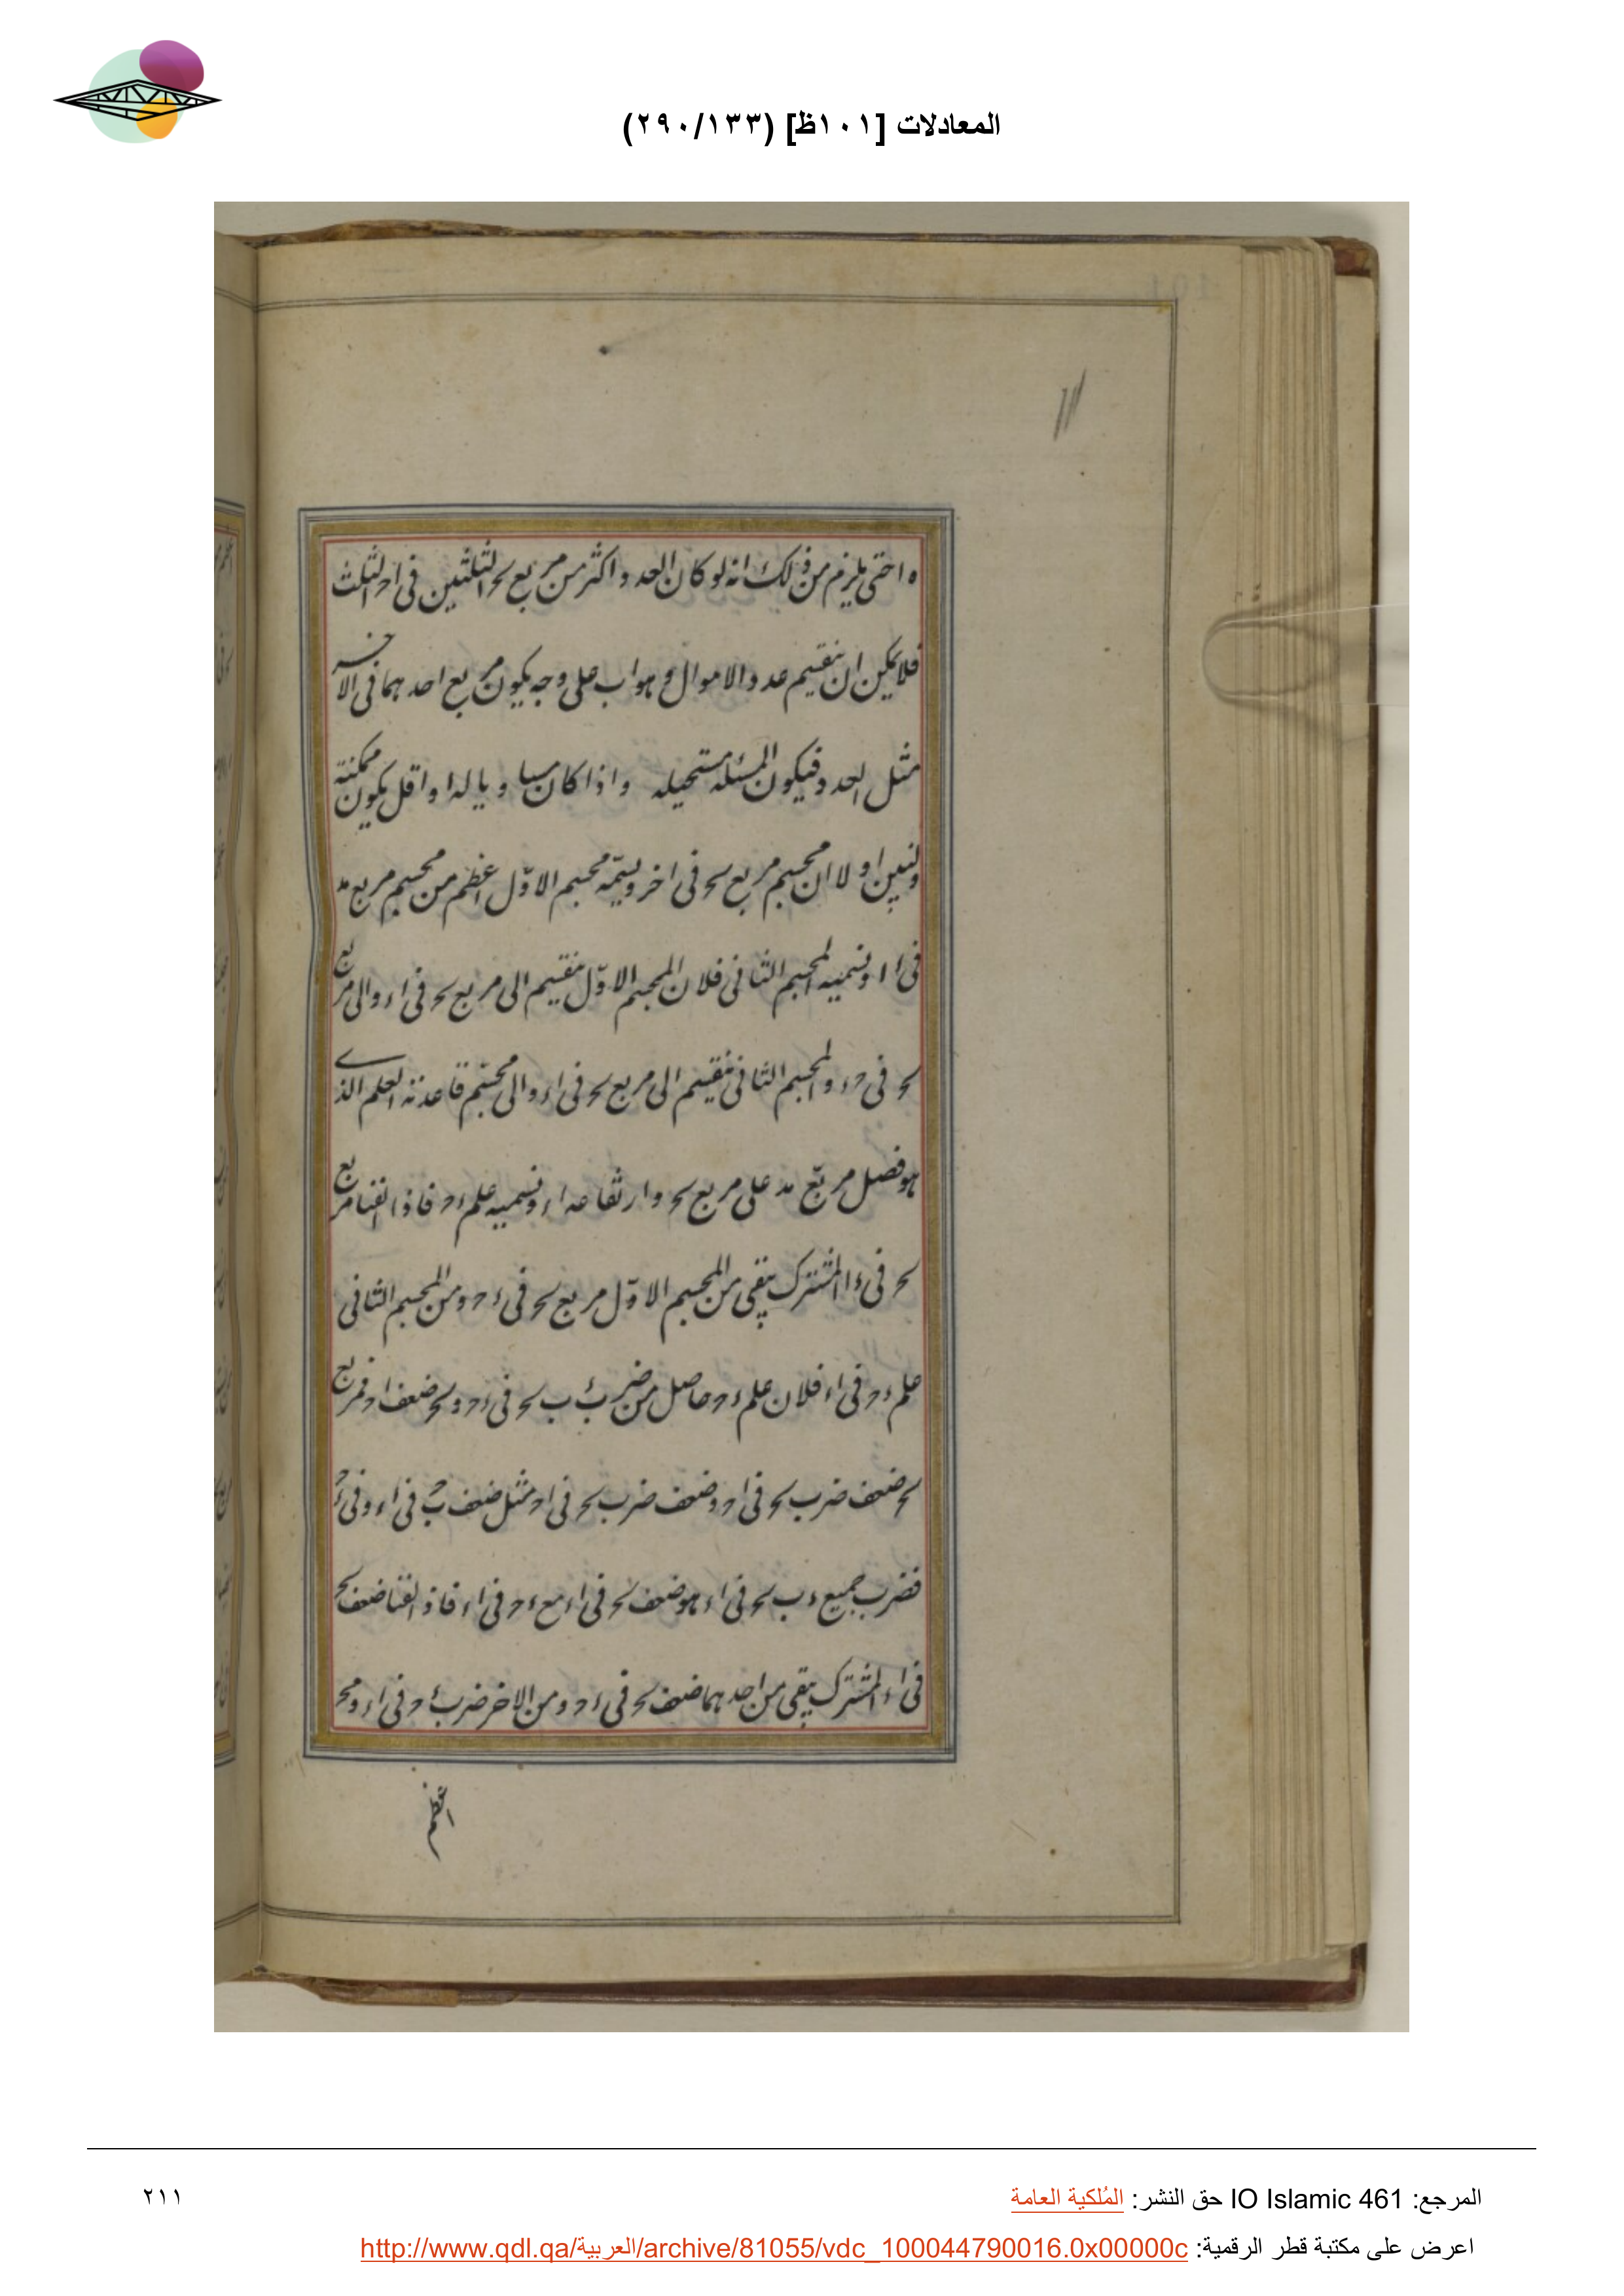 المعادلات [١٠١ظ] (٢٩٠/١٣٣)
ه ا حتى يلزم من ذلك انه لو كان العدد اكثر من مربع بحر الثلثين فى ا حـ الثلث
فلا يمكن ان ينقسم عدد الاموال وهو اب على وجه يكون مربع احدهما فى الاخر
مثل العدد فيكون المسئله مستحيله واذا كان مساويا له او اقل يكون ممكنة
ولنبين اولا ان مجسم مربع بحر فى ا حـ ويسمّه مجسم الاوّل اعظم من مجسم مربع مد
فى ا ا ونسميه المجسم الثانى فلان المجسم الاوّل ينقسم الى مربع بحر فى ا ء والى مربع
بحر فى حـ ء والمجسم الثانى ينقسم الى مربع بحر فى ا ء والى مجسّم قاعدته العلم الذى
هو فضل مربّع مد على مربع بحر وارتفاعه ا ء ونسميه علم ء حـ فاذا القينا مربع
بحر فى ء ا المشترك يبقى من المجسم الاوّل مربع بحر فى ء حـ ومن المجسم الثانى
علم ء حـ فى ا ء فلان علم ء حـ حاصل من ضرب ء ب بحر فى ء حـ وبحر ضعف ا حـ فمربع
بحر ضعف ضرب بحر فى ا حـ وضعف ضرب بحر فى ا حـ مثل ضعف بحر فى ا ء وفى ء حـ
فضرب جميع ء ب بحر فى ا ء هو ضعف بحر فى ا ء مع ء حـ فى ا ء فاذا القينا ضعف بحر
فى ا ء المشترك يبقى من احدهما ضعف بحر فى ء حـ ومن الاخر ضرب ء حـ فى ا ء وبحر
اعظم
المرجع: IO Islamic 461 حق النشر: المُلكية العامة
٢١١
اعرض على مكتبة قطر الرقمية: http://www.qdl.qa/العربية/archive/81055/vdc_100044790016.0x00000c